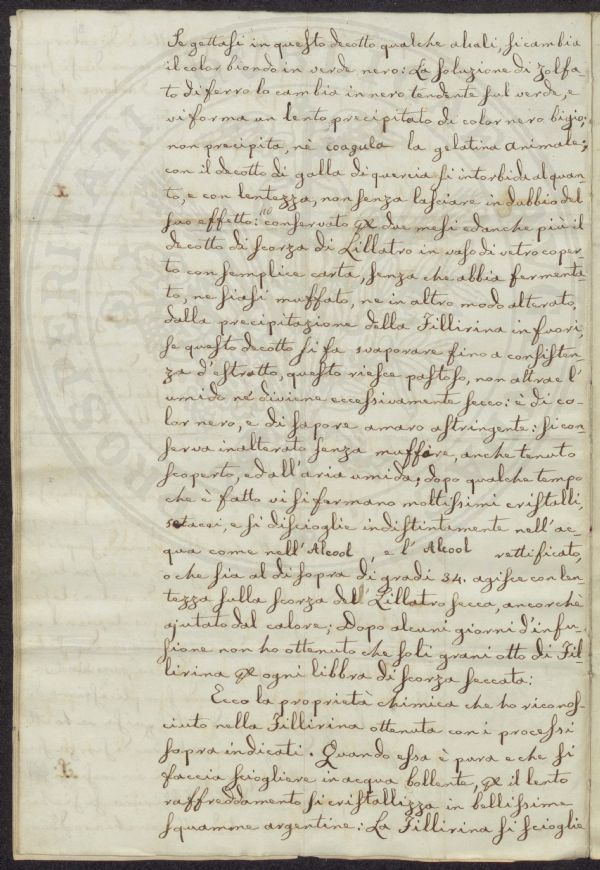 Se gettasi in questo decotto qualche alcali, si cambia
il color biondo in verde nero: La soluzione di zolfa-
to di ferro lo cambia in nero tendente sul verde, e
vi forma un lento precipitato di color nero bigio;
non precipita, nè coagula la gelatina animale;
con il decotto di galla di quercia si intorbida alquan
to, e con lentezza, non senza lasciare in dubbio del
suo effetto: ho conservato per due mesi ed anche più il
decotto di scorza di Lillatro in vaso di vetro coper-
to con semplice carta, senza che abbia fermenta-
to, ne siasi muffato, ne in altro modo alterato,
dalla precipitazione della Fillirina in fuori,
se questo decotto si fa svaporare fino a consisten
za d'estratto, questo riesce pastoso, non attrae l'
umido nè diviene eccessivamente secco: è di co-
lor nero, e di sapore amaro astringente: si con-
serva inalterato senza muffire, anche tenuto
scoperto, ed all'aria umida, dopo qualche tempo
che è fatto vi si formano moltissimi cristalli,
setacei, e si discioglie indistintamente nell'ac-
qua come nell'Alcool, e l'Alcool rettificato,
o che sia al di sopra di gradi 34. agisce con len-
tezza sulla scorza del Lillatro secca, ancorchè
ajutato dal calore; Dopo alcuni giorni d'infu-
sione non ho ottenuto che soli grani otto di Fil-
lirina per ogni libbra di scorza seccata:
Ecco la proprietà chimica che ho riconos-
ciuto nella Fillirina ottenuta con i processi
sopra indicati. Quando essa è pura e che si
faccia sciogliere in acqua bollente, per il lento
raffreddamento si cristallizza in bellissime
squamme argentine: La Fillirina si scioglie